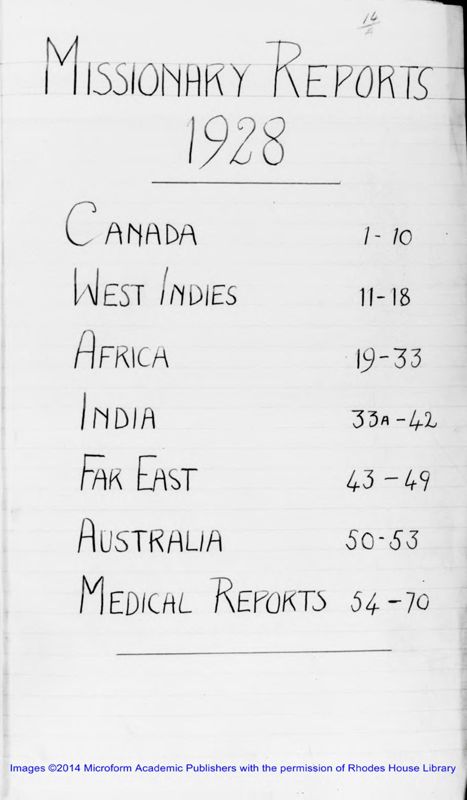 14
MISSIONARY REPORTS
1928
CANADA 1-10
WEST INDIES 11-18
AFRICA 19-33
INDIA 33A-42
FAR EAST 43-49
AUSTRALIA 50-53
MEDICAL REPORTS 54-70
Images ©2014 Microform Academic Publishers with the permission of Rhodes House Library